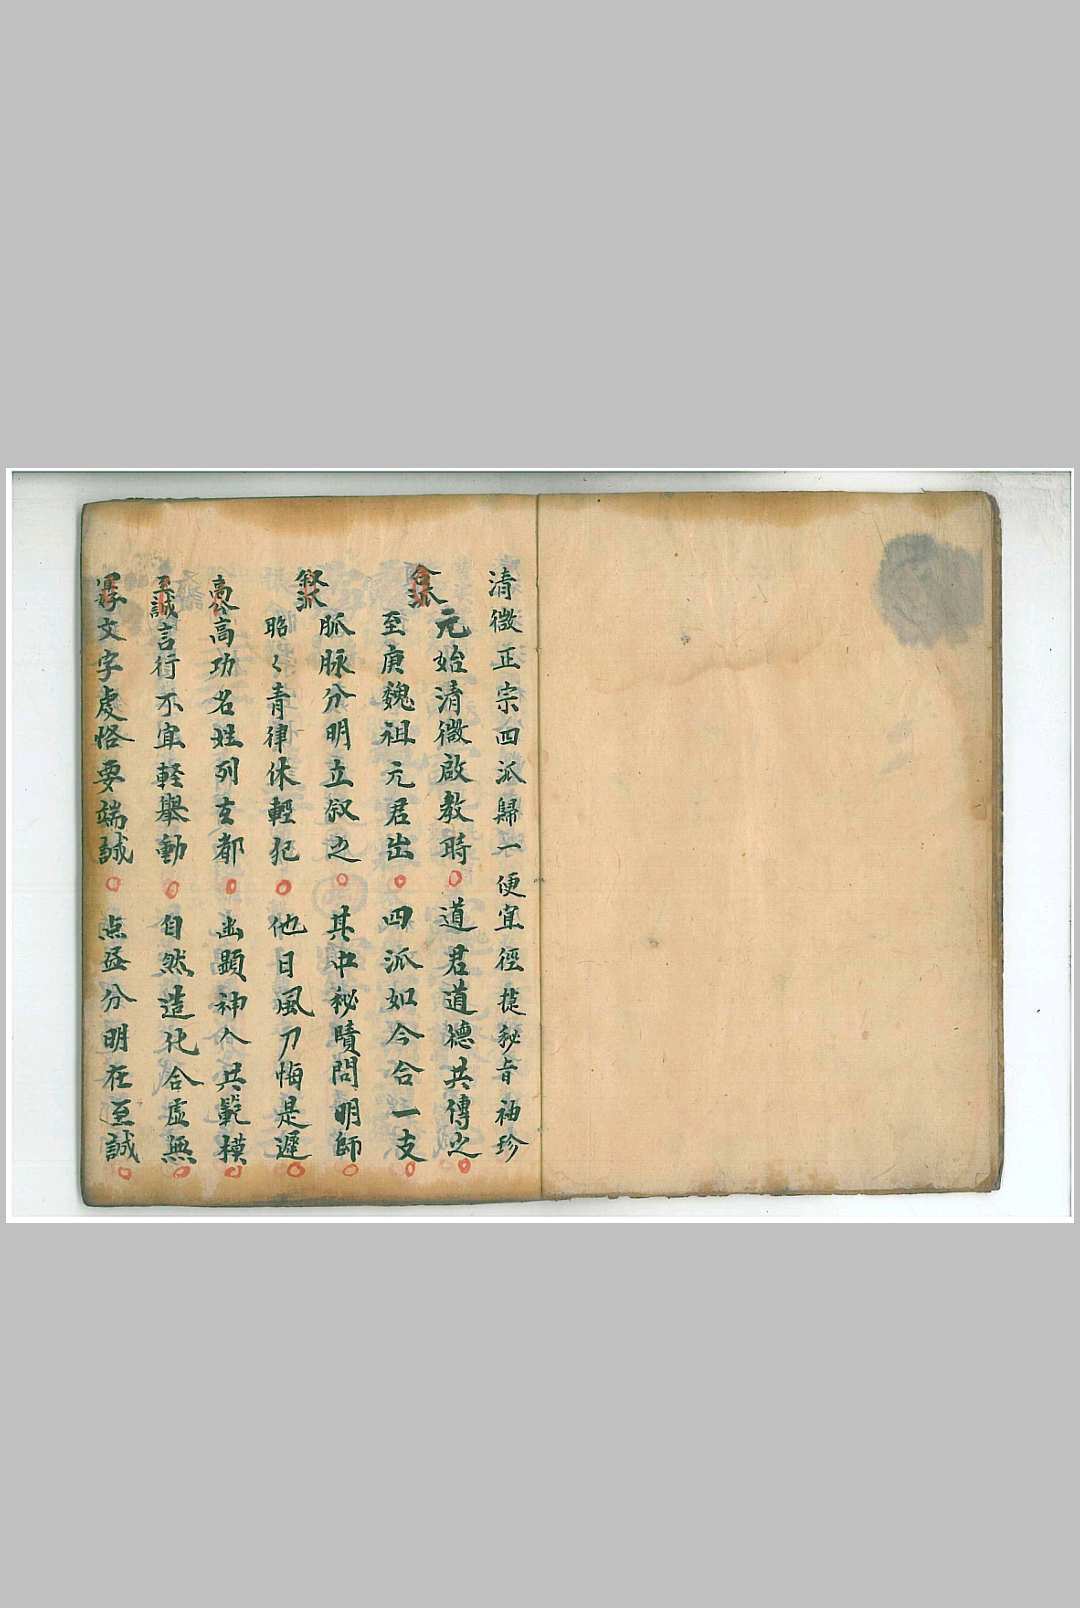 清微正宗四派歸一便宜徑捷秘旨袖珍
合派
元始清微啟教時 道君道德共傳之
至庚魏祖元君出 四派如今合一支
叙派
脈脉分明立叙之 其中秘賾問明師
昭〻青律休輕犯 他日風刀悔是遲
高公
高功名姓列玄都 出顯神人共範模
至誠
言行不宜輊舉動 自然造化合虛無
寫字
文字處恪要端誠 点畫分明在至誠